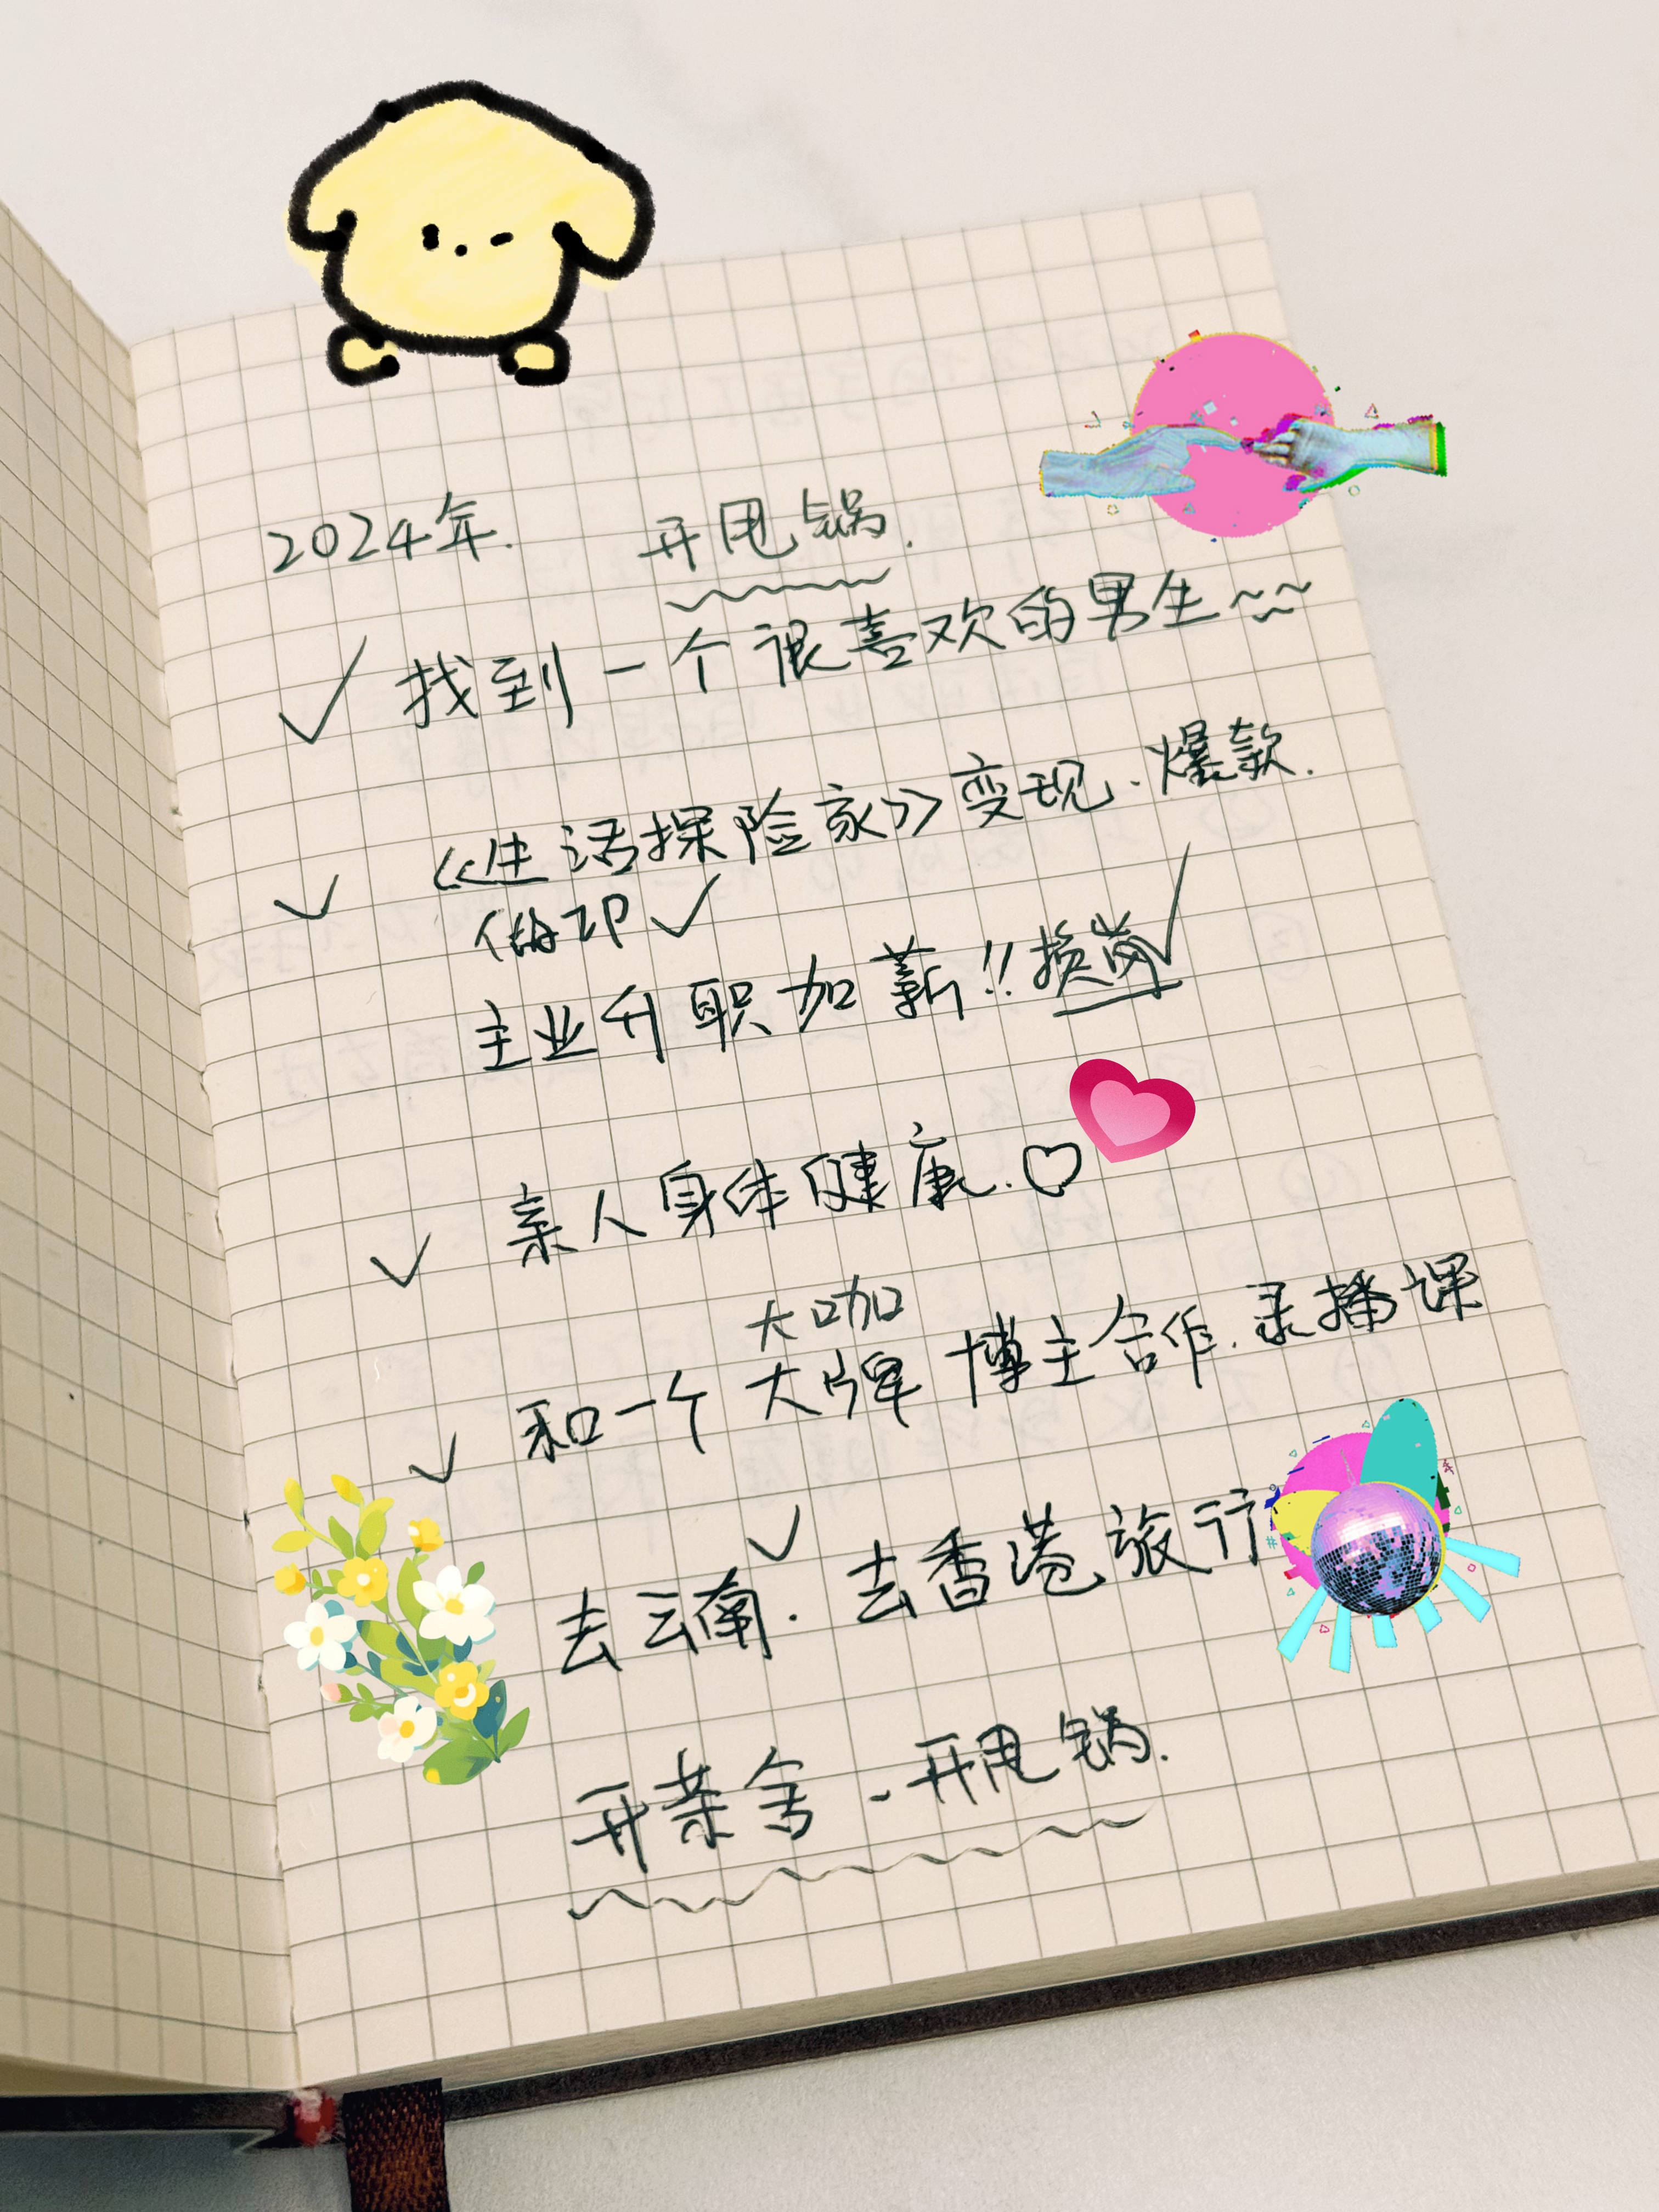 2024年. 开甩锅.
✓ 找到一个很喜欢的男生~~~
✓ 《生活探险家》变现、爆款.
做IP ✓
主业升职加薪!! 换岗✓
✓ 亲人身体健康.♡
大咖
✓ 和一个大牌博主合作.录播课
✓
去云南. 去香港旅行
开茶舍、开甩锅.